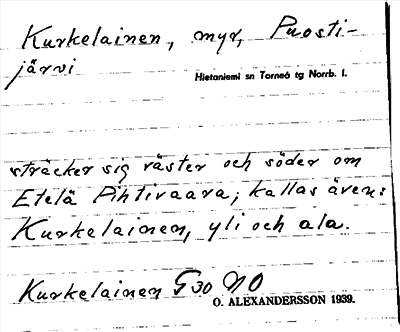 Kurkelainen, myr, Puosti-
järvi
Hietaniemi sn Torneå tg Norrb. l.
sträcker sig väster och söder om
Etelä Pihtivaara; kallas även:
Kurkelainen, yli och ala.
Kurkelainen G 30 NO
O. ALEXANDERSSON 1939.